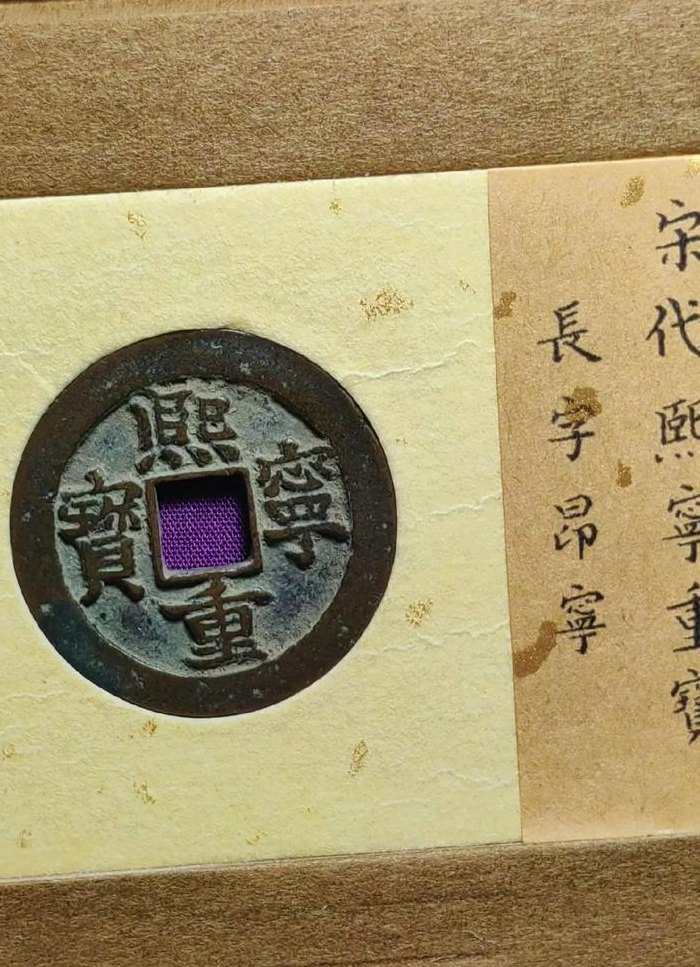 熙寧重寶
宋代熙寧重寶
長字昂寧